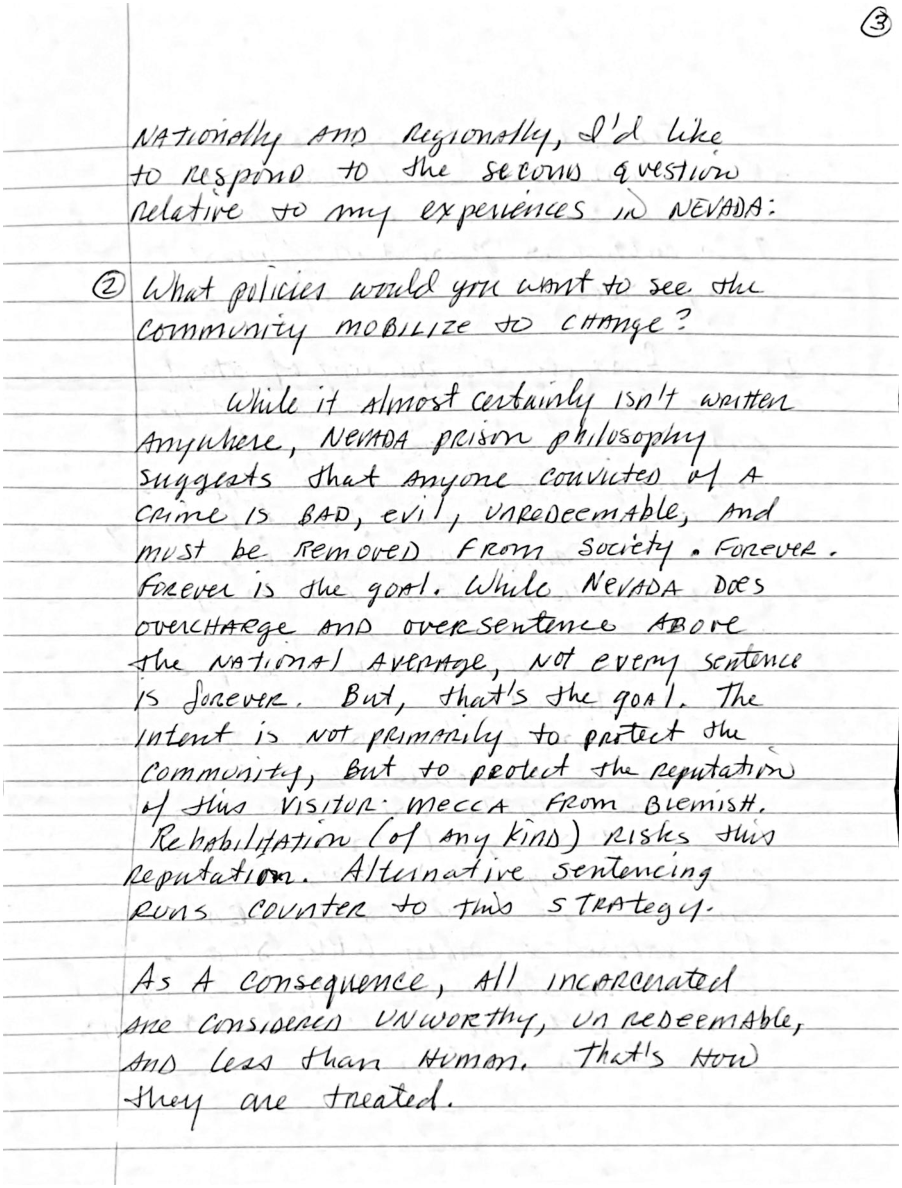 3
Nationally and Regionally, I'd like
to respond to the second question
relative to my experiences in NEVADA:
2 What policies would you want to see the
community mobilize to change?
While it almost certainly isn't written
anywhere, NEVADA prison philosophy
suggests that anyone convicted of a
crime is BAD, evil, unredeemable, and
must be removed from society. Forever.
Forever is the goal. While NEVADA does
overcharge and oversentence above
the national average, not every sentence
is forever. But, that's the goal. The
intent is not primarily to protect the
community, but to protect the reputation
of this visitor mecca from blemish.
Rehabilitation (of any kind) risks this
reputation. Alternative sentencing
runs counter to this strategy.
As a consequence, all incarcerated
are considered unworthy, unredeemable,
and less than human. That's how
they are treated.